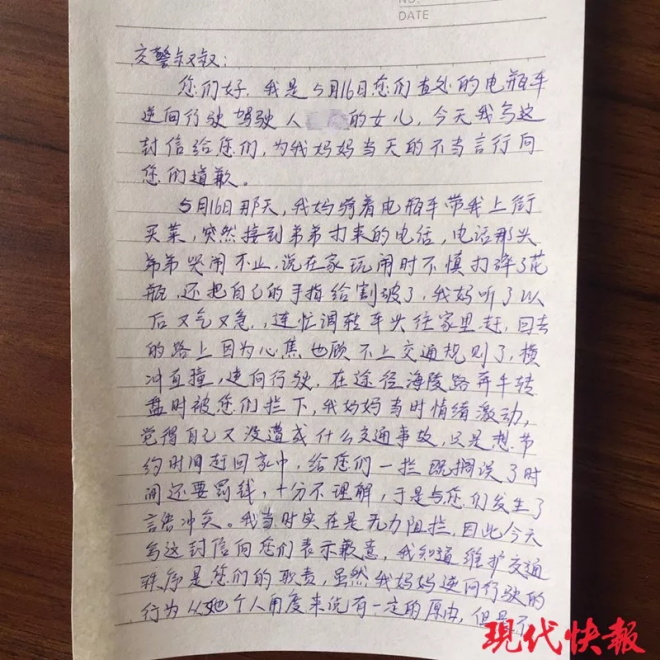 NO.
DATE
交警叔叔：
您们好，我是5月16日您们查处的电瓶车
逆向行驶驾驶人 的女儿，今天我写这
封信给您们，为我妈妈当天的不当言行向
您们道歉。
5月16日那天，我妈骑着电瓶车带我上街
买菜，突然接到弟弟打来的电话，电话那头
弟弟哭闹不止，说在家玩闹时不慎打碎了花
瓶，还把自己的手指给割破了，我妈听了以
后又气又急，连忙调转车头往家里赶，回去
的路上因为心焦也顾不上交通规则了，横
冲直撞，逆向行驶，在途径海陵路奔牛转
盘时被您们拦下，我妈妈当时情绪激动，
觉得自己又没遭成什么交通事故，只是想节
约时间赶回家中，给您们一拦既搁误了时
间还要罚钱，十分不理解，于是与您们发生了
言语冲突。我当时实在是无力阻拦，因此今天
写这封信向您们表示歉意，我知道维护交通
秩序是您们的职责，虽然我妈妈逆向行驶的
行为从她个人角度来说有一定的原由，但是
现代快报